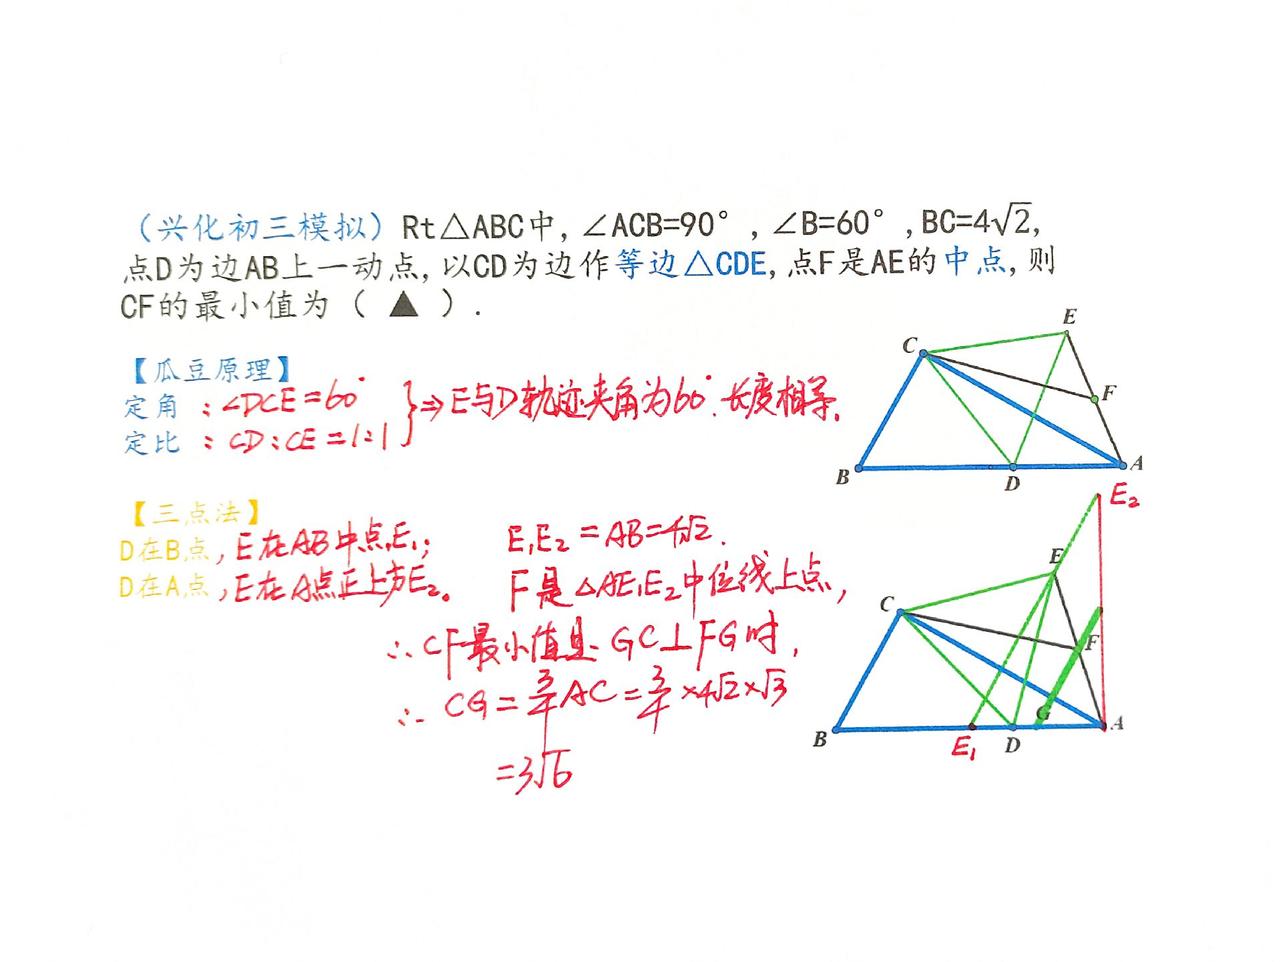 （兴化初三模拟）Rt△ABC中，∠ACB=90°，∠B=60°，BC=4√2，
点D为边AB上一动点，以CD为边作等边△CDE，点F是AE的中点，则
CF的最小值为（ ▲ ）．
E
C
F
B
D
A
【瓜豆原理】
定角：∠DCE=60°
定比：CD:CE=1:1
} ⇒ E与D轨迹夹角为60°.长度相等.
【三点法】
D在B点，E在AB中点E₁;
D在A点，E在A点正上方E₂。
E₁E₂=AB=4√2.
F是△AE₁E₂中位线上点，
∴CF最小值是GC⊥FG时，
∴CG=3/4AC=3/4×4√2×√3
=3√6
E₂
E
C
F
G
B
E₁
D
A